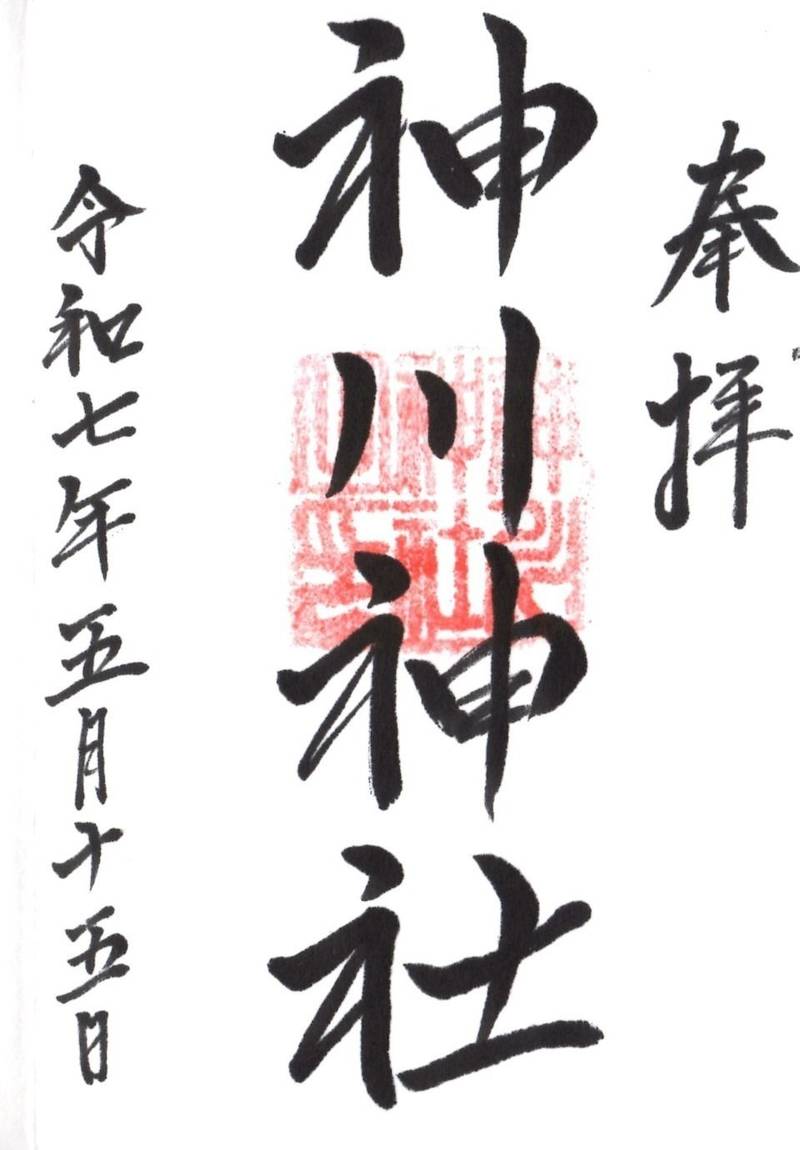 奉拝
神川神社
令和七年五月十五日